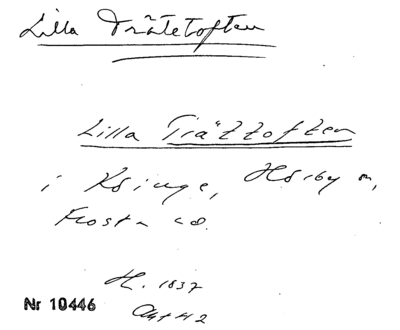 Lilla Trätetoften
Lilla Trätztoften
i Ksinge, Hörby sn,
Frosta hd.
H. 1837
Akt 42
Nr 10446